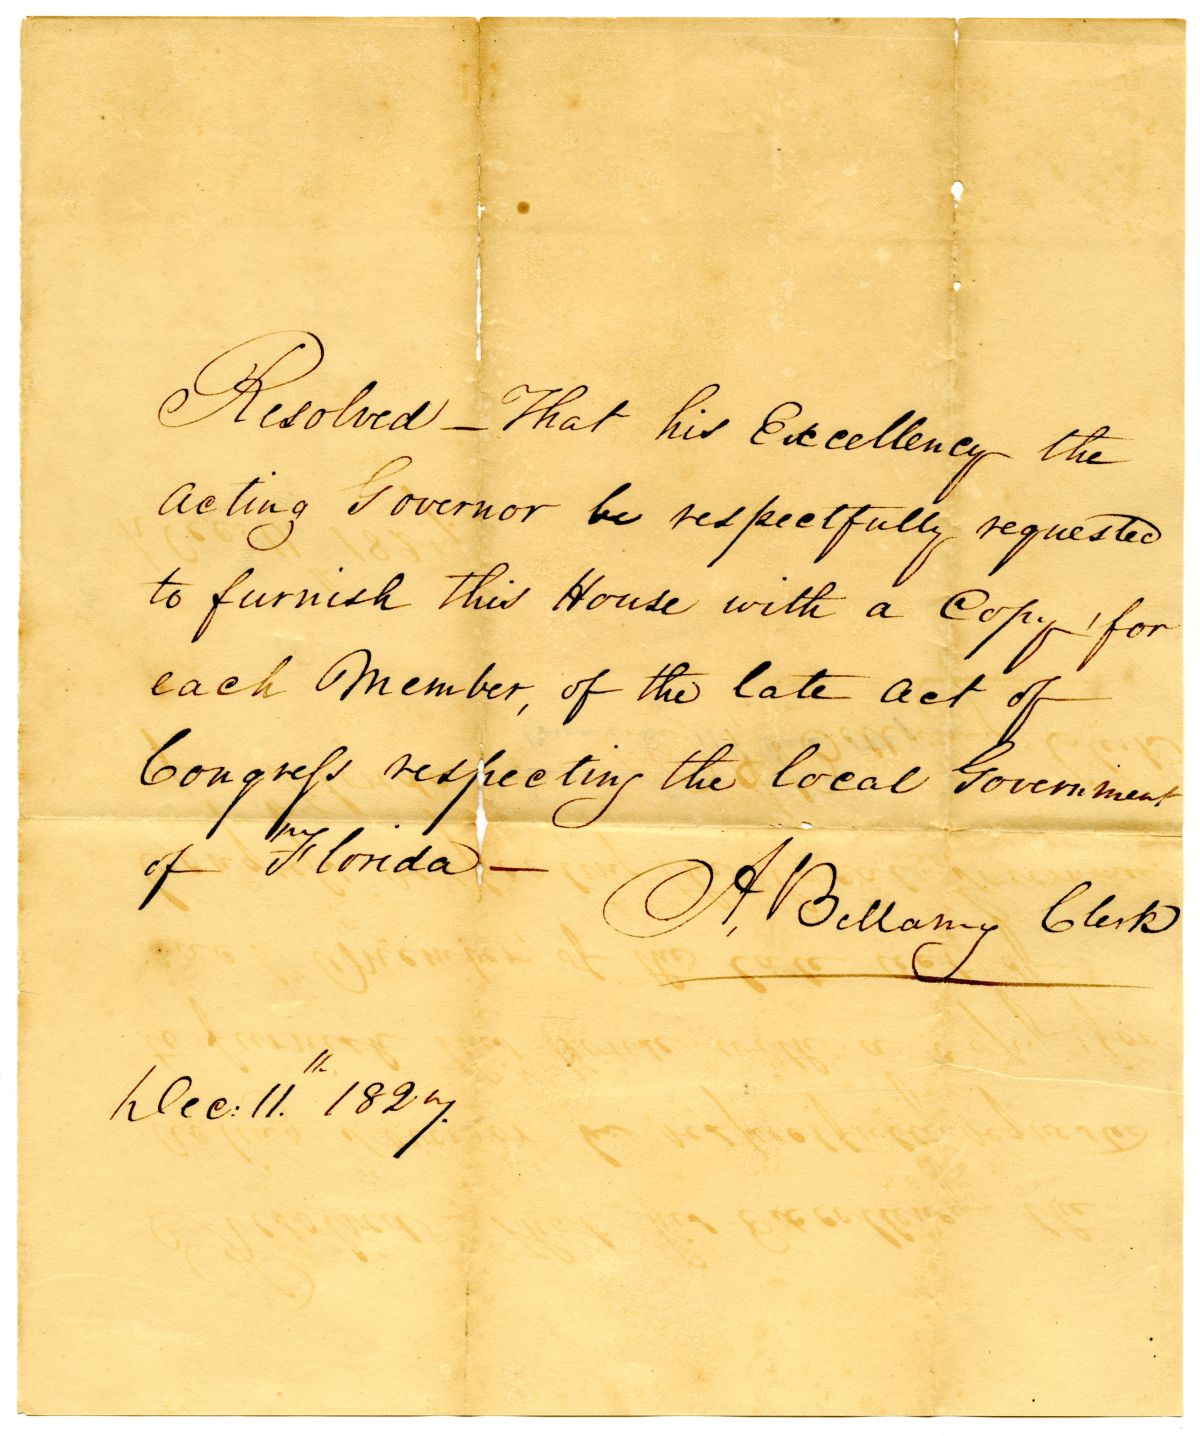 Resolved — That his Excellency the
acting Governor be respectfully requested
to furnish this House with a Copy, for
each Member, of the late act of
Congress respecting the local Government
of Florida —
A, Bellamy Clerk
Dec: 11.th 1827.